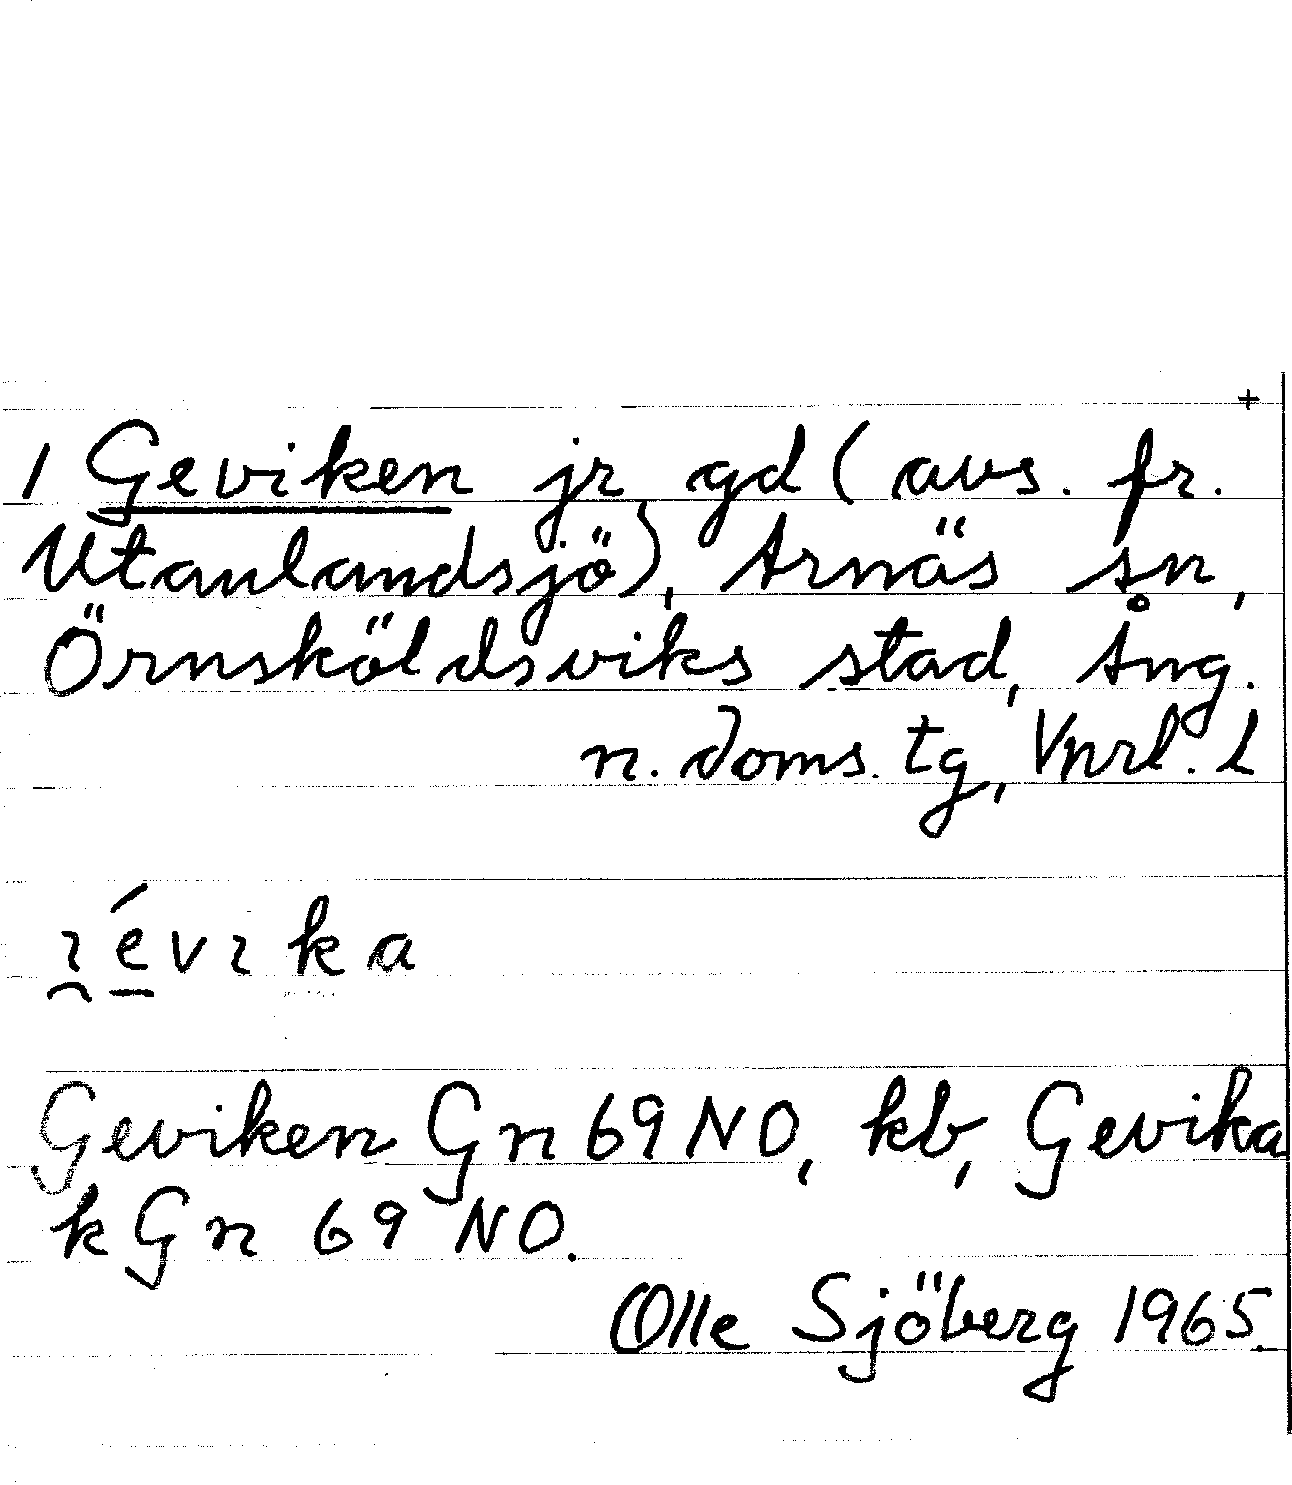 +
1 Geviken jr gd (avs. fr.
Utanlandsjö), Arnäs sn,
Örnsköldsviks stad, Ång.
n. doms. tg, Vnrl. l
Geviken Gn 69 NO, kb, Gevika
k Gn 69 NO.
Olle Sjöberg 1965.